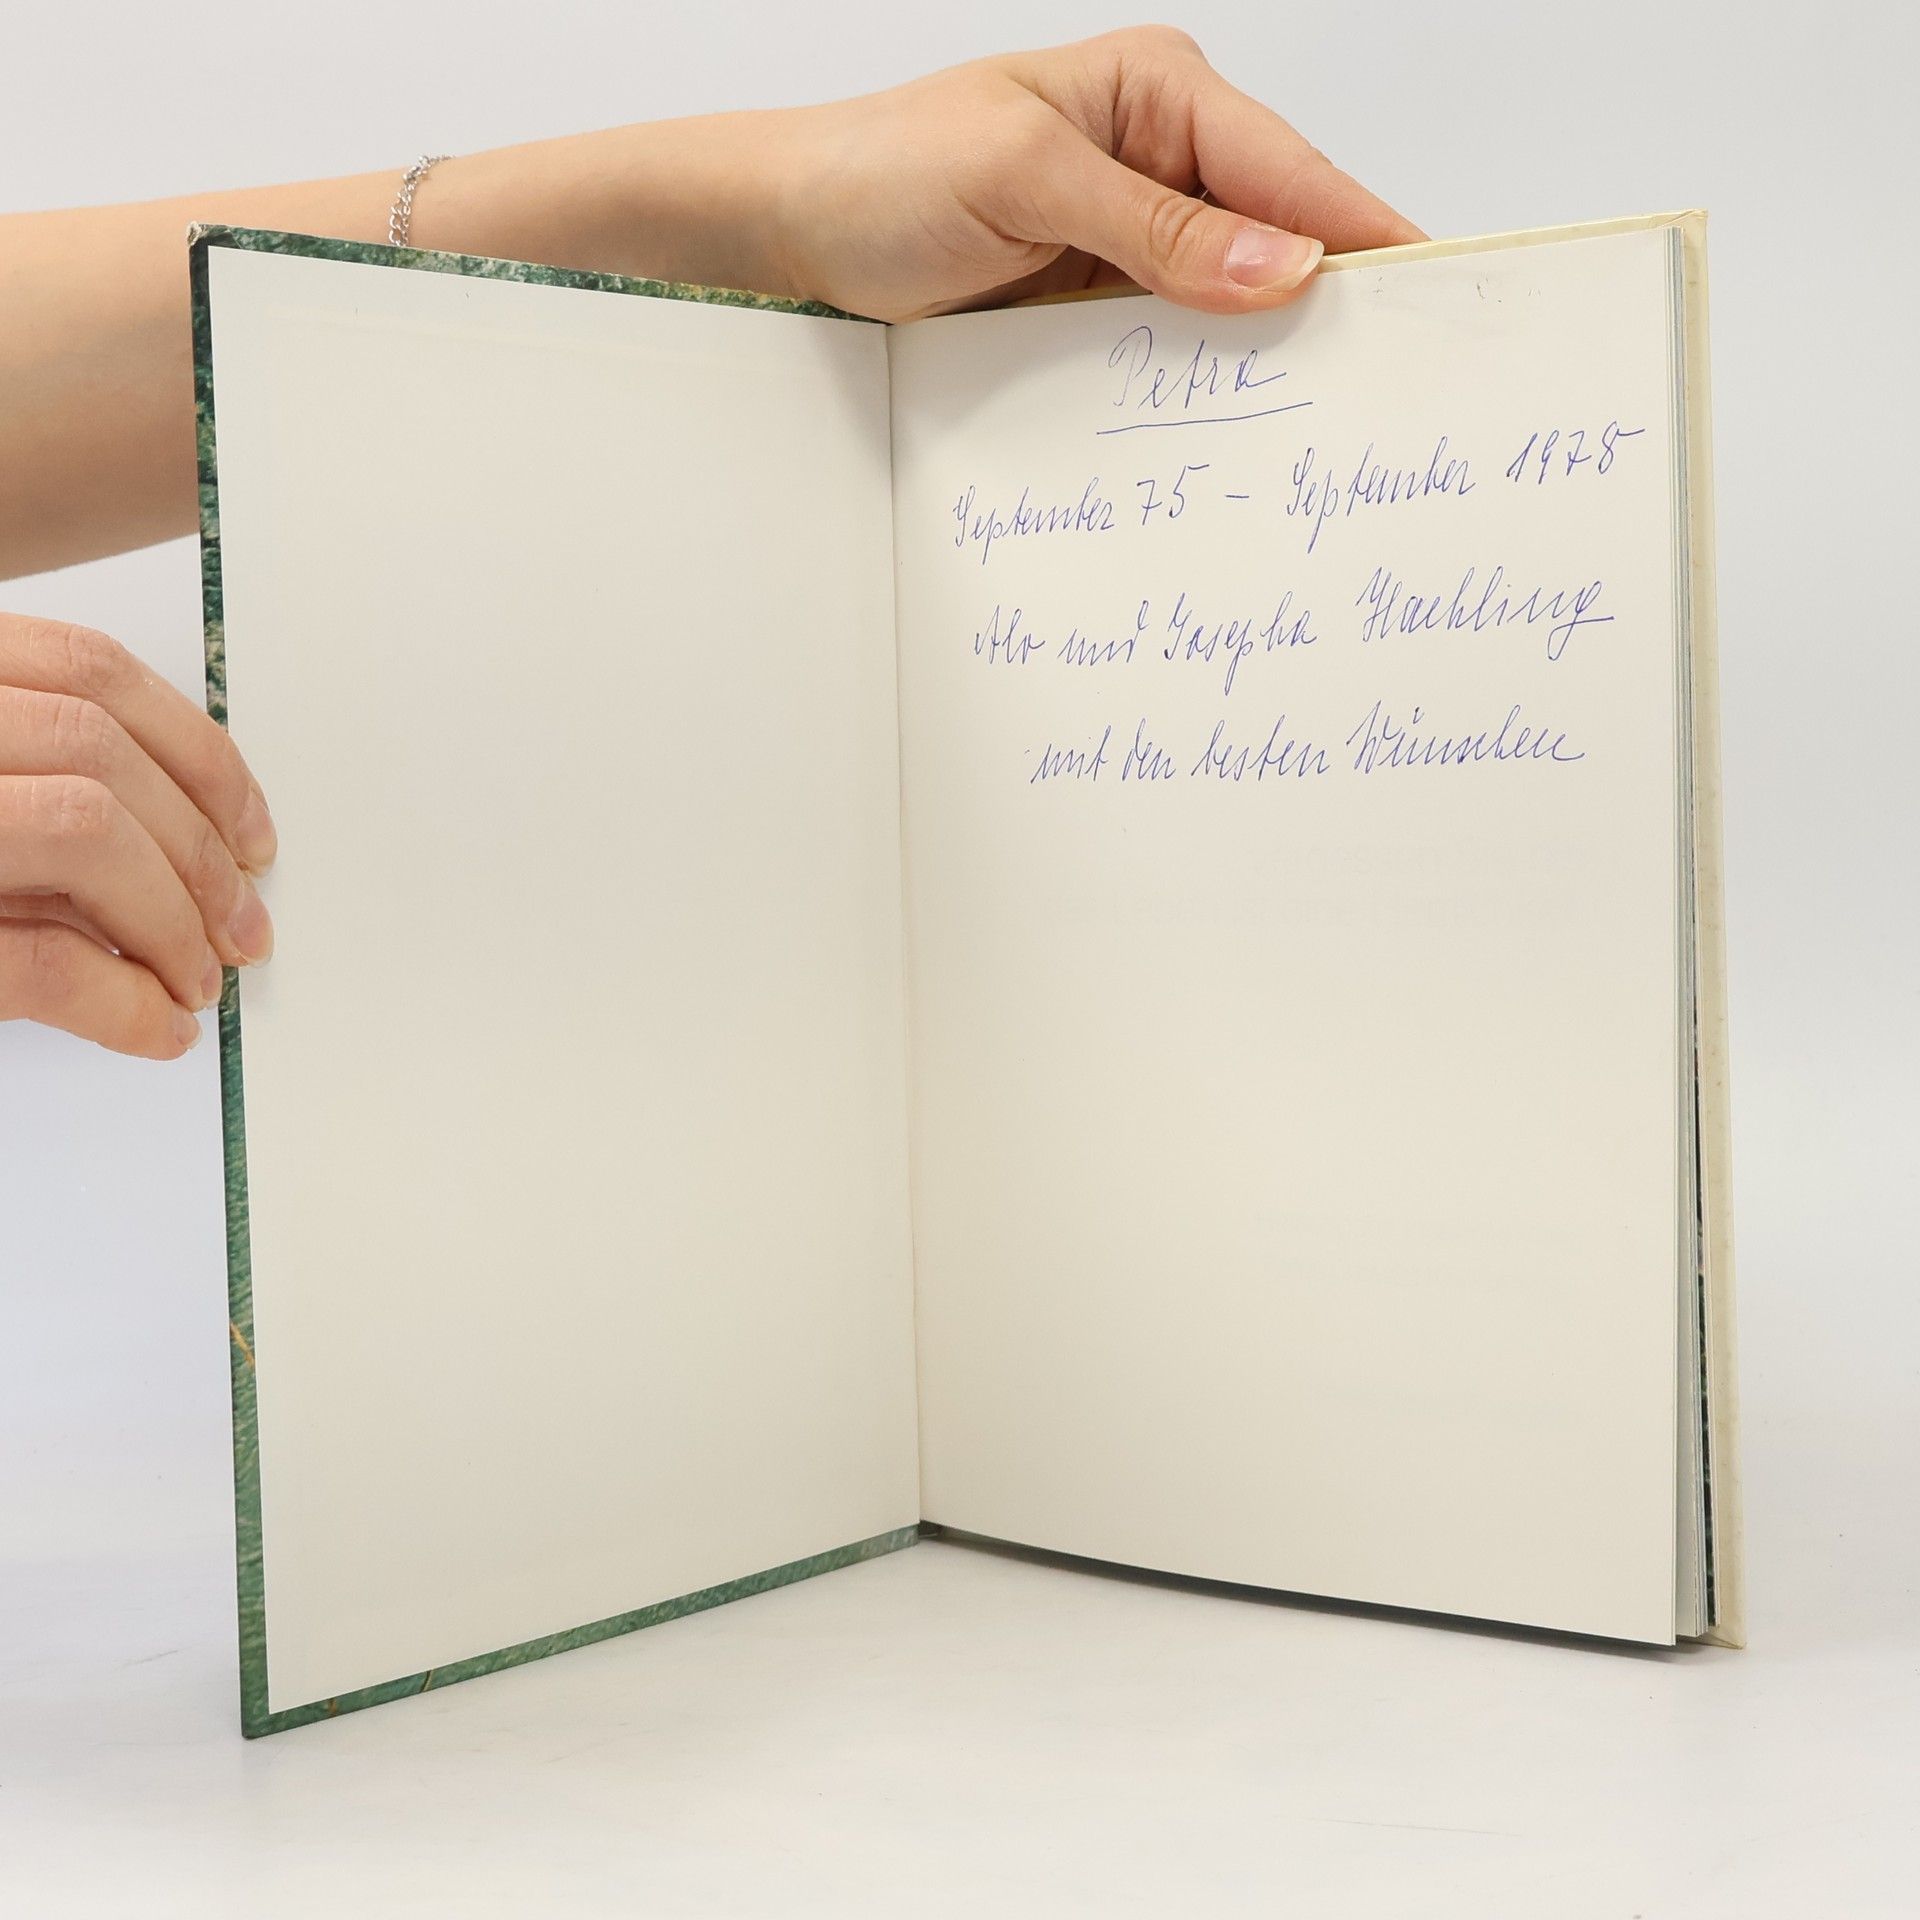 Petra
September 75 - September 1978
und Josepha Haehling
mit den besten Wünschen